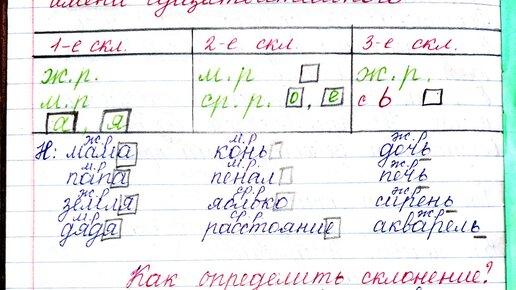 имени существительного
1-е скл. 2-е скл. 3-е скл.
ж.р. м.р ж.р.
м.р ср.р. о, е с ь
а, я
ж.р м.р ж.р
Н: мама конь дочь
м.р м.р ж.р
папа пенал печь
ж.р ср.р ж.р
земля яблоко сирень
м.р ср.р ж.р
дядя расстояние акварель
Как определить склонение?